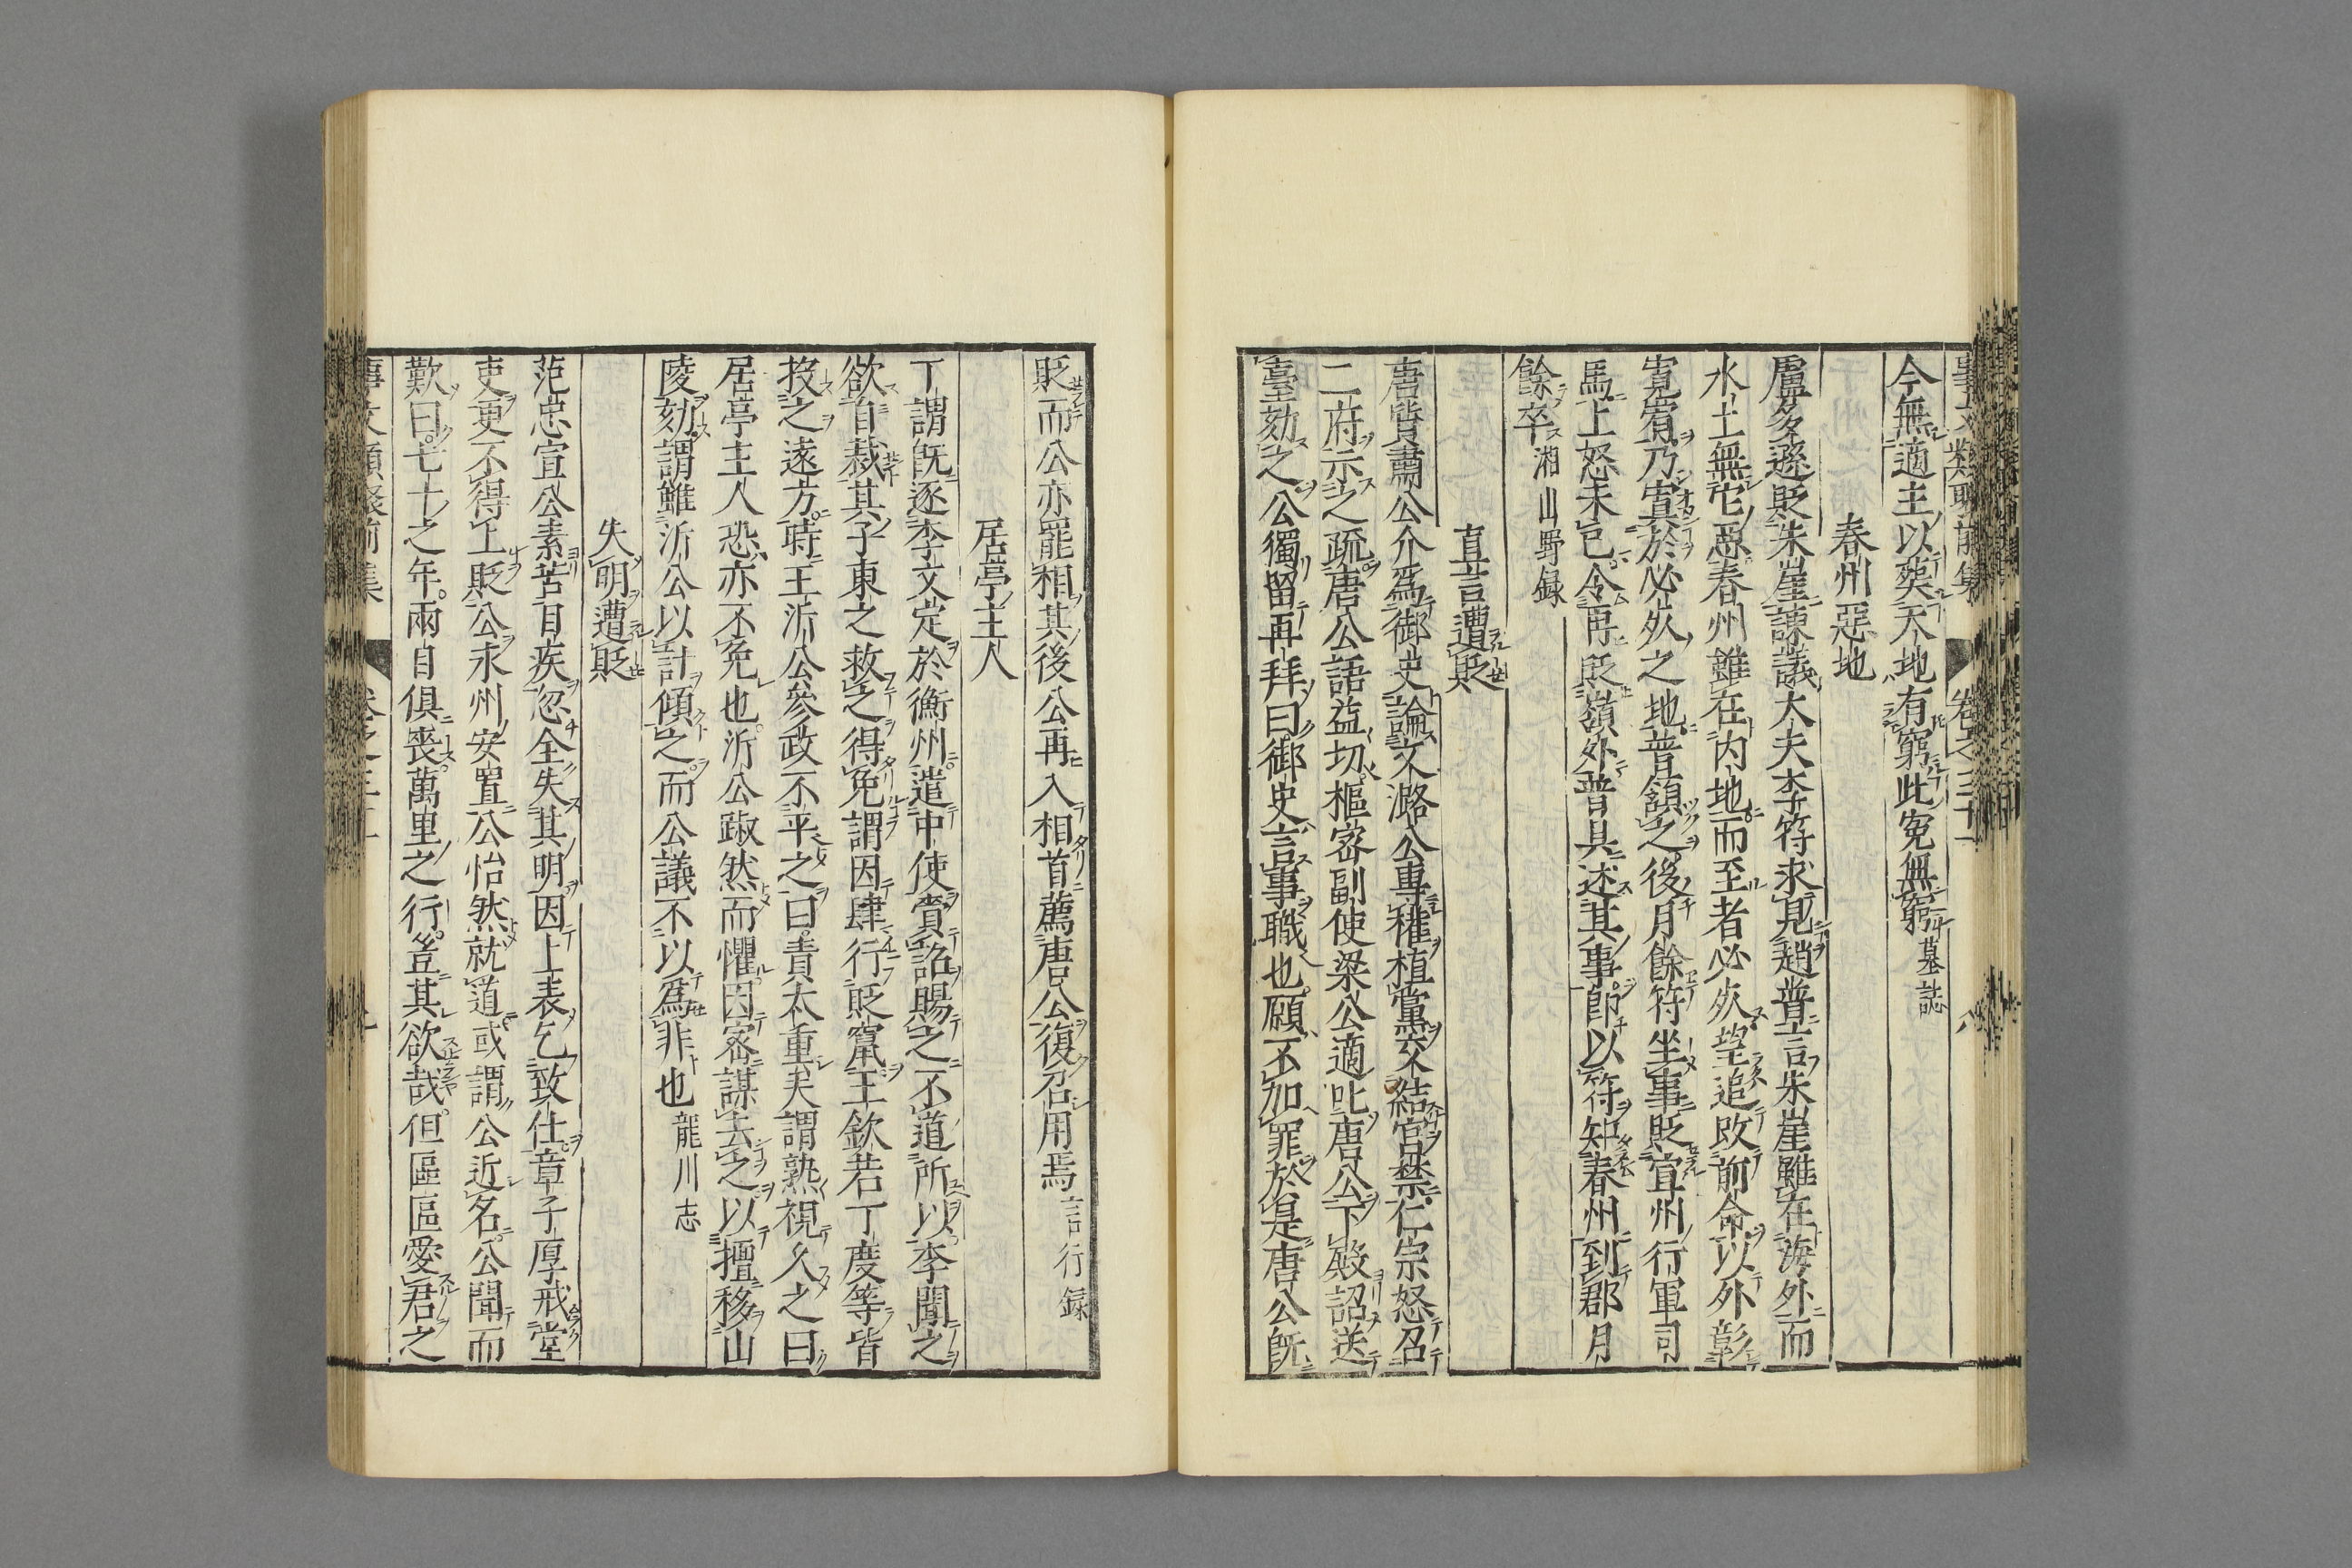 事文類聚前集　卷之三十一　八
今無適主以葬天地有窮此寃無窮墓誌
春州惡地
盧多遜貶朱崖諫議大夫李符求見趙普言朱崖雖在海外而
水土無它惡春州雖在内地而至者必死望追改前命以外彰
寛宥乃寘於必死之地普頷之後月餘符坐事貶宣州行軍司
馬上怒未已令再貶嶺外普具述其事即以符知春州到郡月
餘卒湘山野録
直言遭貶
唐質肅公介爲御史論文潞公專權植黨交結宫禁仁宗怒召
二府示之疏唐公語益切樞密副使梁公適叱唐公下殿詔送
臺劾之公獨留再拜曰御史言事職也願不加罪於是唐公既
貶而公亦罷相其後公再入相首薦唐公復召用焉言行録
居亭主人
丁謂既逐李文定於衡州遣中使賫詔賜之不道所以李聞之
欲自裁其子東之救之得免謂因肆行貶竄王欽若丁度等皆
投之遠方時王沂公參政不平之曰責太重矣謂熟視久之曰
居亭主人恐亦不免也沂公踧然而懼因密謀去之以擅移山
陵劾謂雖沂公以計傾之而公議不以爲非也龍川志
失明遭貶
范忠宣公素苦目疾忽全失其明因上表乞致仕章子厚戒堂
吏更不得上貶公永州安置公怡然就道或謂公近名公聞而
歎曰七十之年兩目俱喪萬里之行豈其欲哉但區區愛君之
事文類聚前集　卷之三十一